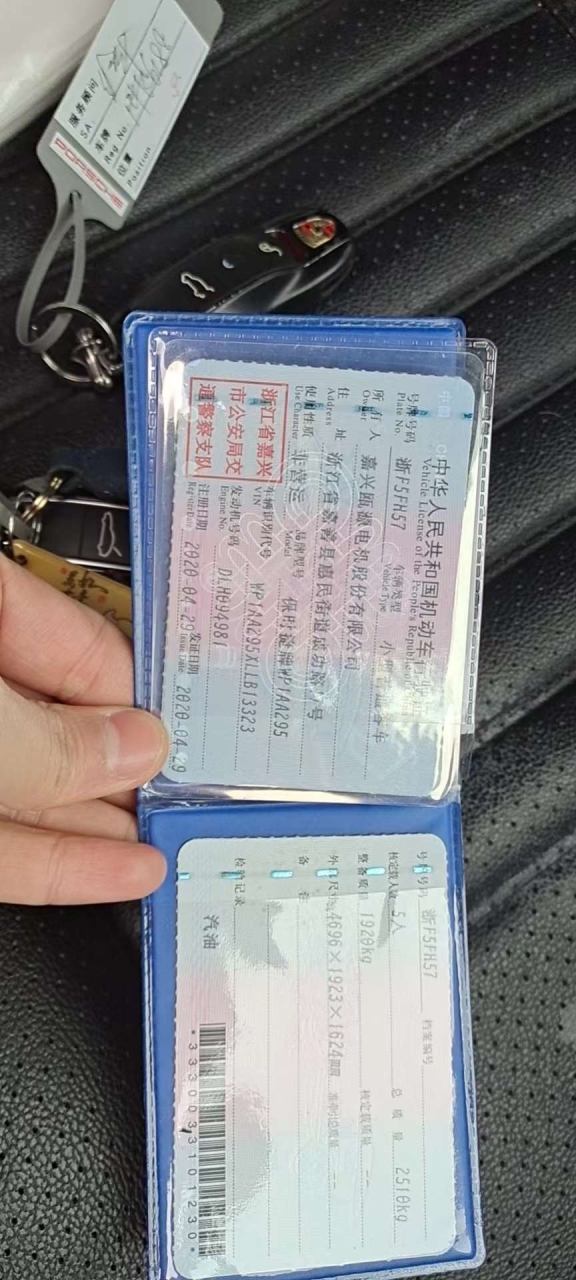 服务顾问
SA.
车牌
Reg No.
位置
Position
PORSCHE
中华人民共和国机动车行驶证
Vehicle License of the People's Republic of
号牌号码 浙F5FH57 车辆类型
Plate No. Vehicle Type
所有人 嘉兴瓯源电机股份有限公司
Owner
住址 浙江省嘉善县惠民街道成功路 号
Address
使用性质 非营运 品牌型号 保时捷牌WP1AA295
Use Character Model
浙江省嘉兴
市公安局交
通警察支队
车辆识别代号 WP1AA295XLLB13323
VIN
发动机号码 DLH094981
Engine No.
注册日期 2020-04-29 发证日期 2020-04-29
Register Date Issue Date
号牌号码 浙F5FH57 档案编号
核定载人数 5人 总质量 2510kg
整备质量 1920kg 核定载质量 --
外廓尺寸 4696×1923×1624mm 准牵引总质量 --
备注
检验记录
汽油
*3330033101230*